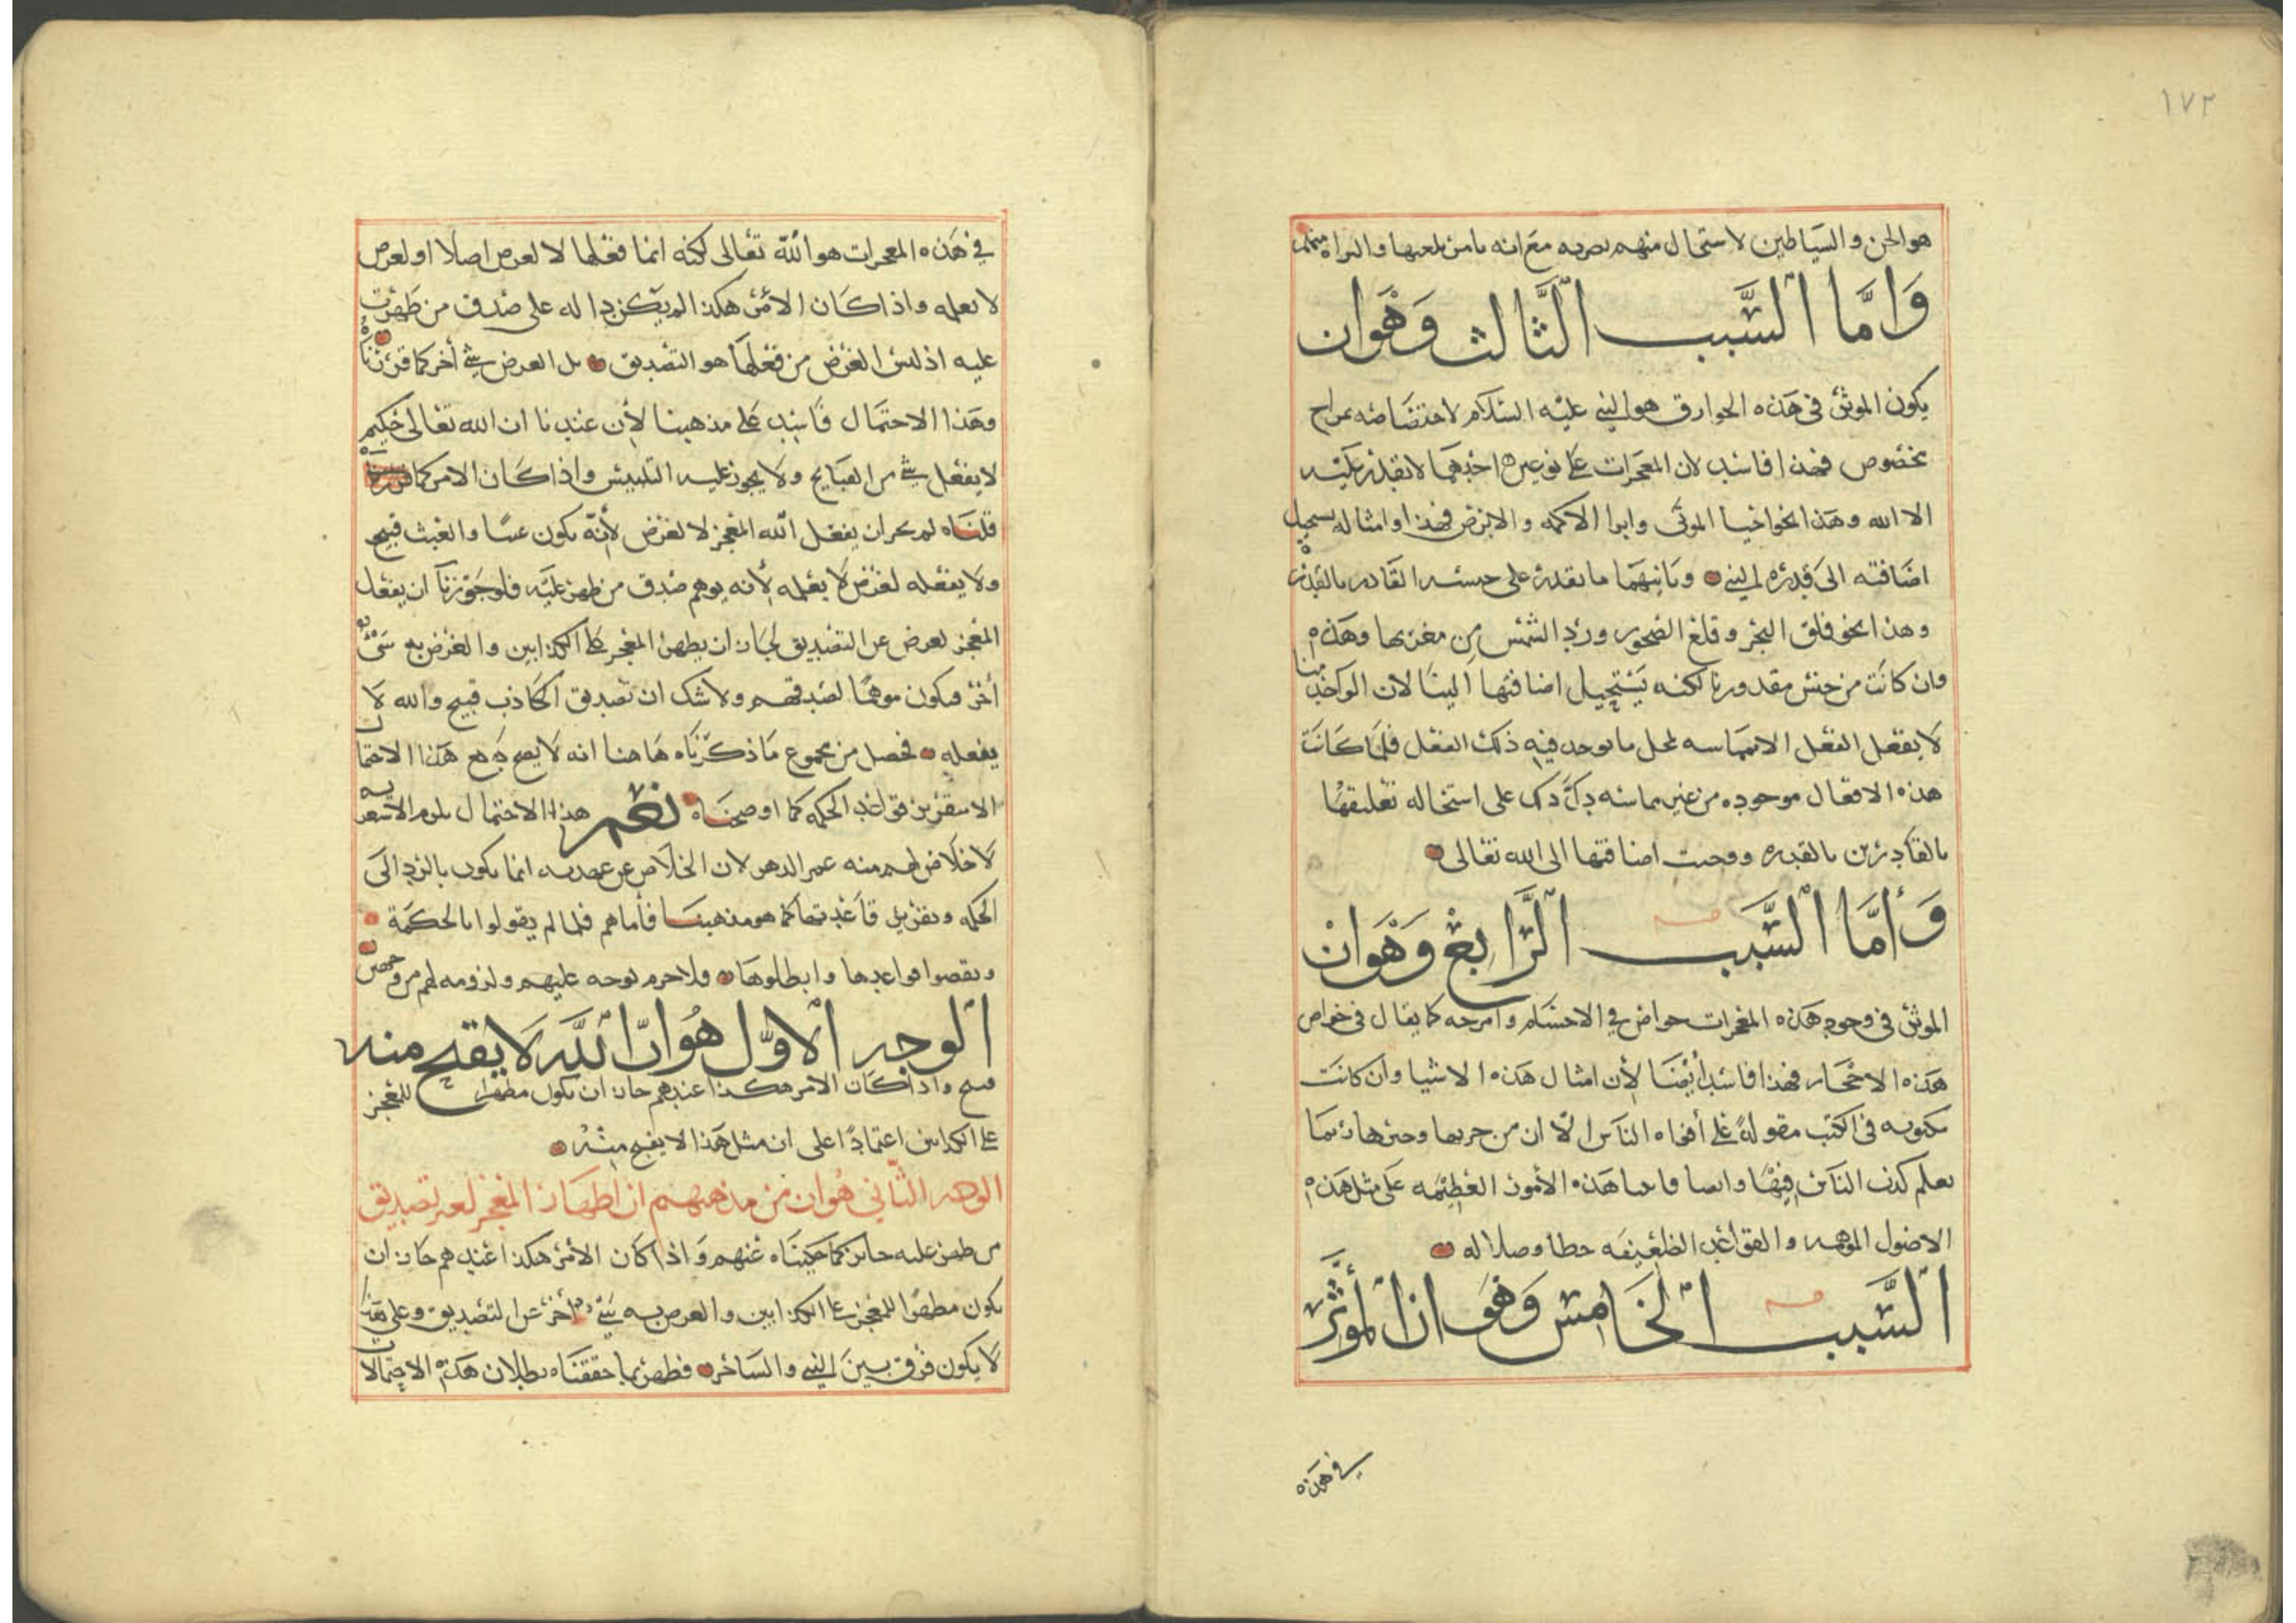 ١٧٢
هو الجن والشياطين لاستحال منهم نصرته مع انه يامر بلعنها والبراة منها
وَامَّا السَّبب الثَّالث وَهْوَان
يكون الموثر فى هذه الخوارق هو النبي عليه السَّلام لاختصاصه بمزاج
مخصوص فهذا فاسد لان المعجزات على نوعين احدهما لا يقدر عليه
الا الله وهذا نحو احيا الموتى وابرا الاكمه والابرص فهذا وامثاله يستحيل
اضافته الى قدرة النبي وثانيهما ما يقدر على جنسه القادر بالقدرة
وهذا نحو فلق البحر وقلع الصخور ورد الشمس من مغربها وهذه
وان كانت من جنس مقدورنا لكنه يستحيل اضافتها الينا لان الواحد منا
لا يفعل الفعل الا بمماسه لمحل ما يوجد فيه ذلك الفعل فلما كانت
هذه الافعال موجوده من غير مماسه دل ذلك على استحاله تعليقها
بالقادرين بالقدره ووجبت اضافتها الى الله تعالى
وَأمَّا السَّبب الرَّابع وَهْوَان
الموثر فى وجود هذه المعجزات خواص في الاجسام وامزجه كما يقال فى خواص
هذه الاحجار فهذا فاسد أيضا لأن امثال هذه الاشيا وان كانت
مكتوبه فى الكتب مقولة على أفواه الناس الا ان من جربها وخبرها ربما
يعلم كذب الناس فيها وايضا فاحيا هذه الأمور العظيمه على مثل هذه
الاصول الموهمه والقواعد الظعيفه خطا وضلاله
السَّبب الخَامس وَهْوَ ان المؤثّر
في هذه
في هذه المعجزات هو الله تعالى لكنه انما فعلها لا لغرض اصلا او لغرض
لا نعلمه واذا كان الامر هكذا لم يكن دالة على صدق من ظهرت
عليه اذ ليس الغرض من فعلها هو التصديق بل الغرض شي أخر كما قررناه
وهذا الاحتمال فاسد على مذهبنا لأن عندنا ان الله تعالى حكيم
لا يفعل شي من القبايح ولا يجوز عليه التلبيس واذا كان الامر كما
قلناه لم يجز ان يفعل الله المعجز لا لغرض لأنه يكون عبثا والعبث قبيح
ولا يفعله لغرض لا يعلمه لأنه يوهم صدق من ظهر عليه فلو جوزنا ان يفعل
المعجز لغرض غير التصديق لجاز ان يظهر المعجز على الكذابين والغرض به شئ
أخر فيكون موهما لصدقهم ولا شك ان تصديق الكاذب قبيح والله لا
يفعله فحصل من مجموع ما ذكرناه هاهنا انه لا يصح دفع هذا الاحتمال
الا بتقرير قواعد الحكمه كما اوضحناه نعم هذا الاحتمال يلزم الاشعريه
لا خلاص لهم منه عمر الدهر لان الخلاص عن عهدته انما يكون بالرد الى
الحكمه وتقرير قاعدتها كما هو مذهبنا فأما هم فلما لم يقولوا بالحكمة
ونقضوا قواعدها وابطلوها فلا جرم توجه عليهم ولزومه لهم من وجهين
الوجه الاوّل هُوَ انّ اللّه لَا يقبح منه
قبيح واذا كان الامر هكذا عندهم جاز ان يكون مظهرا للمعجز
على الكذابين اعتمادًا على ان مثل هذا لا يقبح منه
الوجه الثّاني هُو ان من مذهبهم ان اظهار المعجز لغير تصديق
من ظهر عليه جايز كما حكيناه عنهم واذا كان الأمر هكذا عندهم جاز ان
يكون مظهرًا للمعجز على الكذابين والغرض به شي أخر غير التصديق وعلى هذا
لا يكون فرق بين النبي والساحر فظهر بما حققناه بطلان هذه الاحتمالات